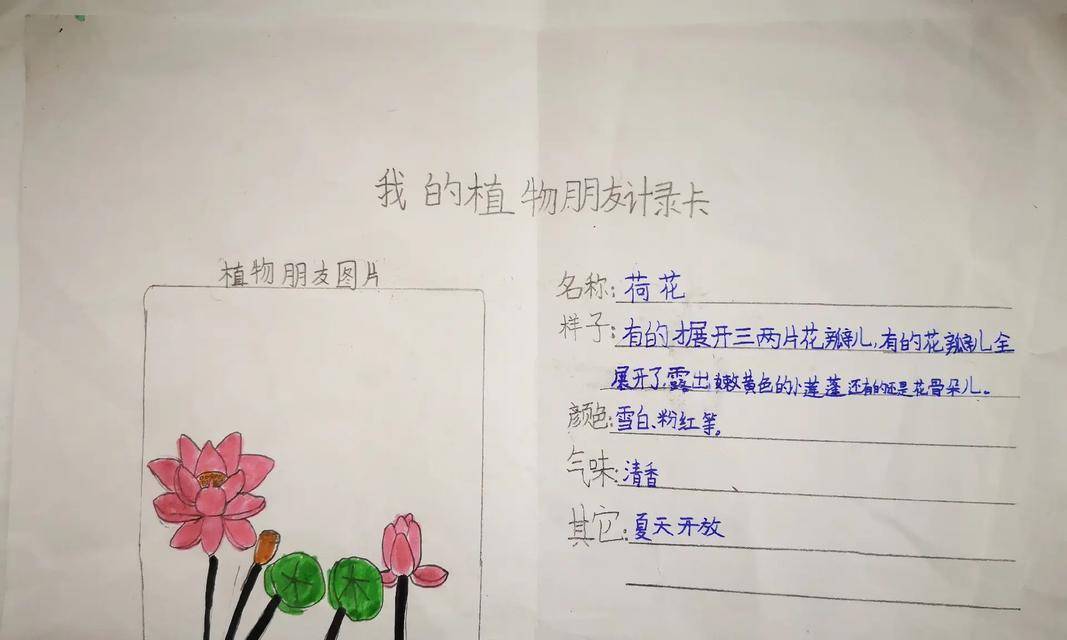 我的植物朋友计录卡
植物朋友图片
名称:荷花
样子:有的才展开三两片花瓣儿,有的花瓣儿全
展开了,露出嫩黄色的小莲蓬还有的还是花骨朵儿。
颜色:雪白、粉红等。
气味:清香
其它:夏天开放